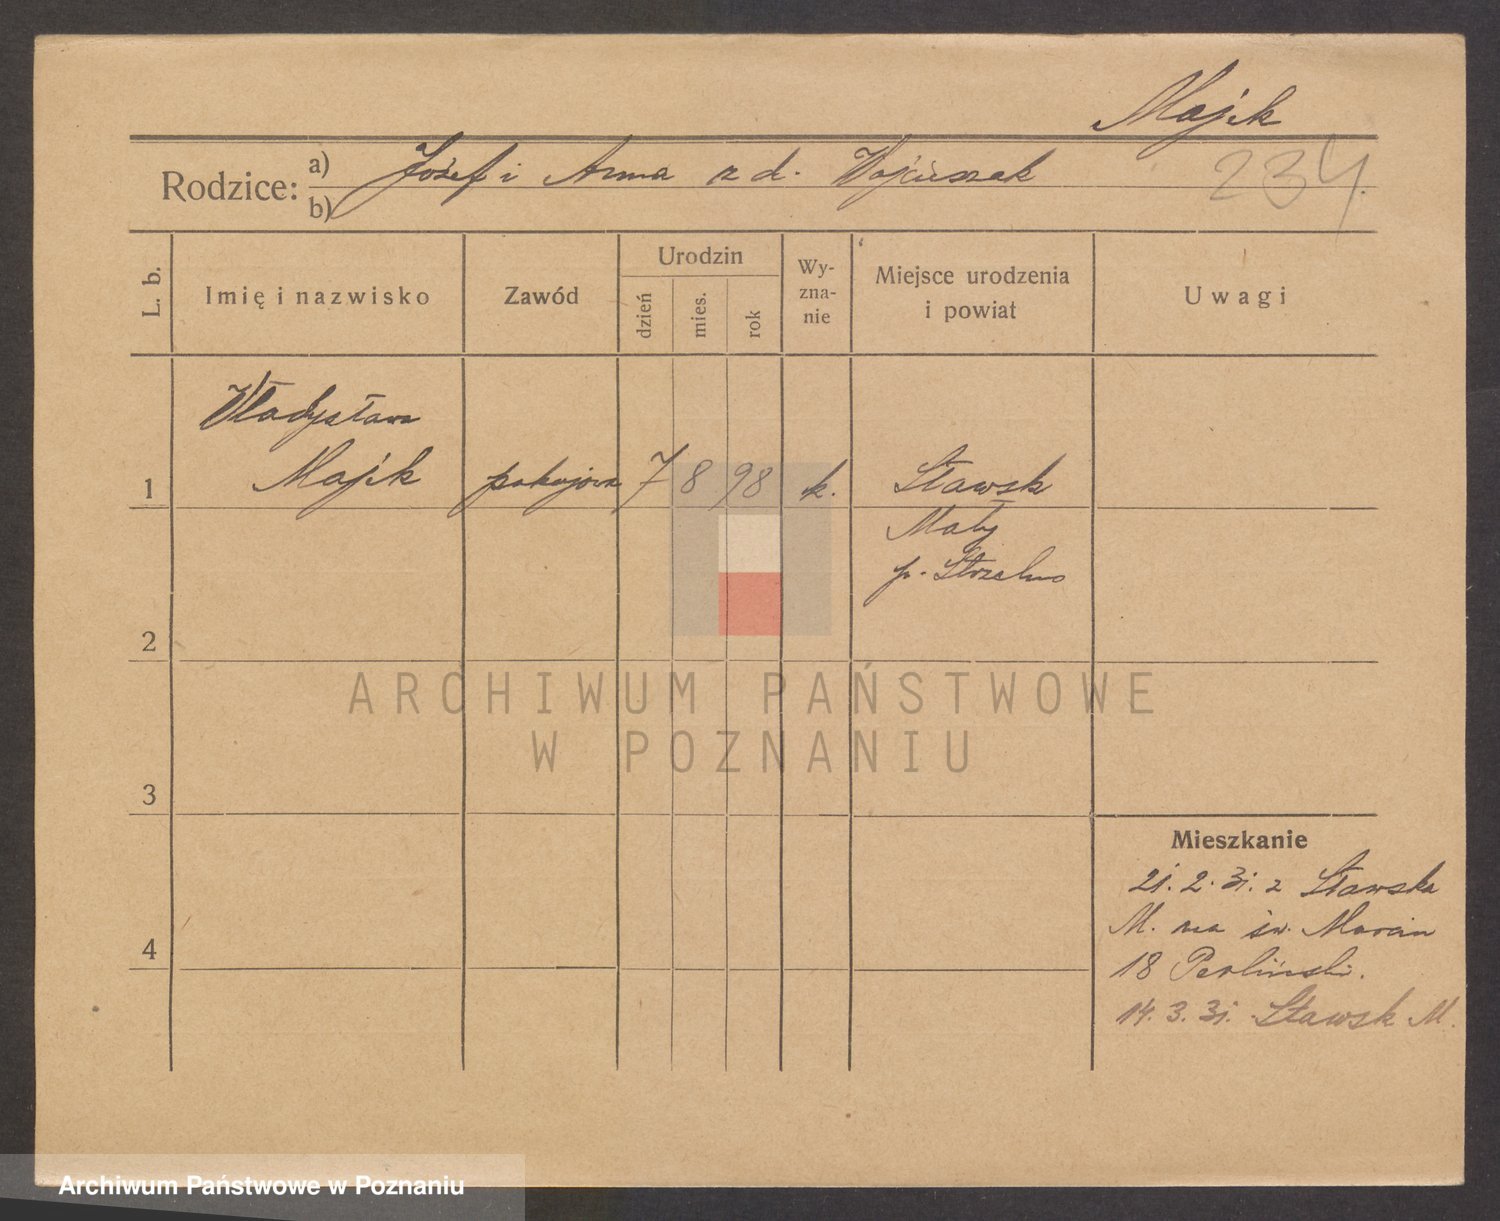 Majik
234.
Rodzice: a) Józef i Anna z d. Wojcieszak
b)
L. b.
Imię i nazwisko
Zawód
Urodzin
dzień
mies.
rok
Wy-
zna-
nie
Miejsce urodzenia
i powiat
Uwagi
Władysława
1 Majik pokojowa 7 8 98 k. Sławsk
Mały
p. Strzelno
2
3
4
Mieszkanie
21. 2. 31. z Sławska
M. na św. Marcin
18 Perliński.
14. 3. 31. Sławsk M.
ARCHIWUM PAŃSTWOWE
W POZNANIU
Archiwum Państwowe w Poznaniu